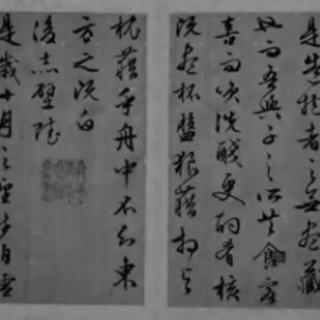 是造物者之無盡藏
也而吾與子之所共食客
喜而笑洗盞更酌肴核
既盡杯盤狼藉相與
枕藉乎舟中不知東
方之既白
後赤壁賦
是歲十月之望步自雪